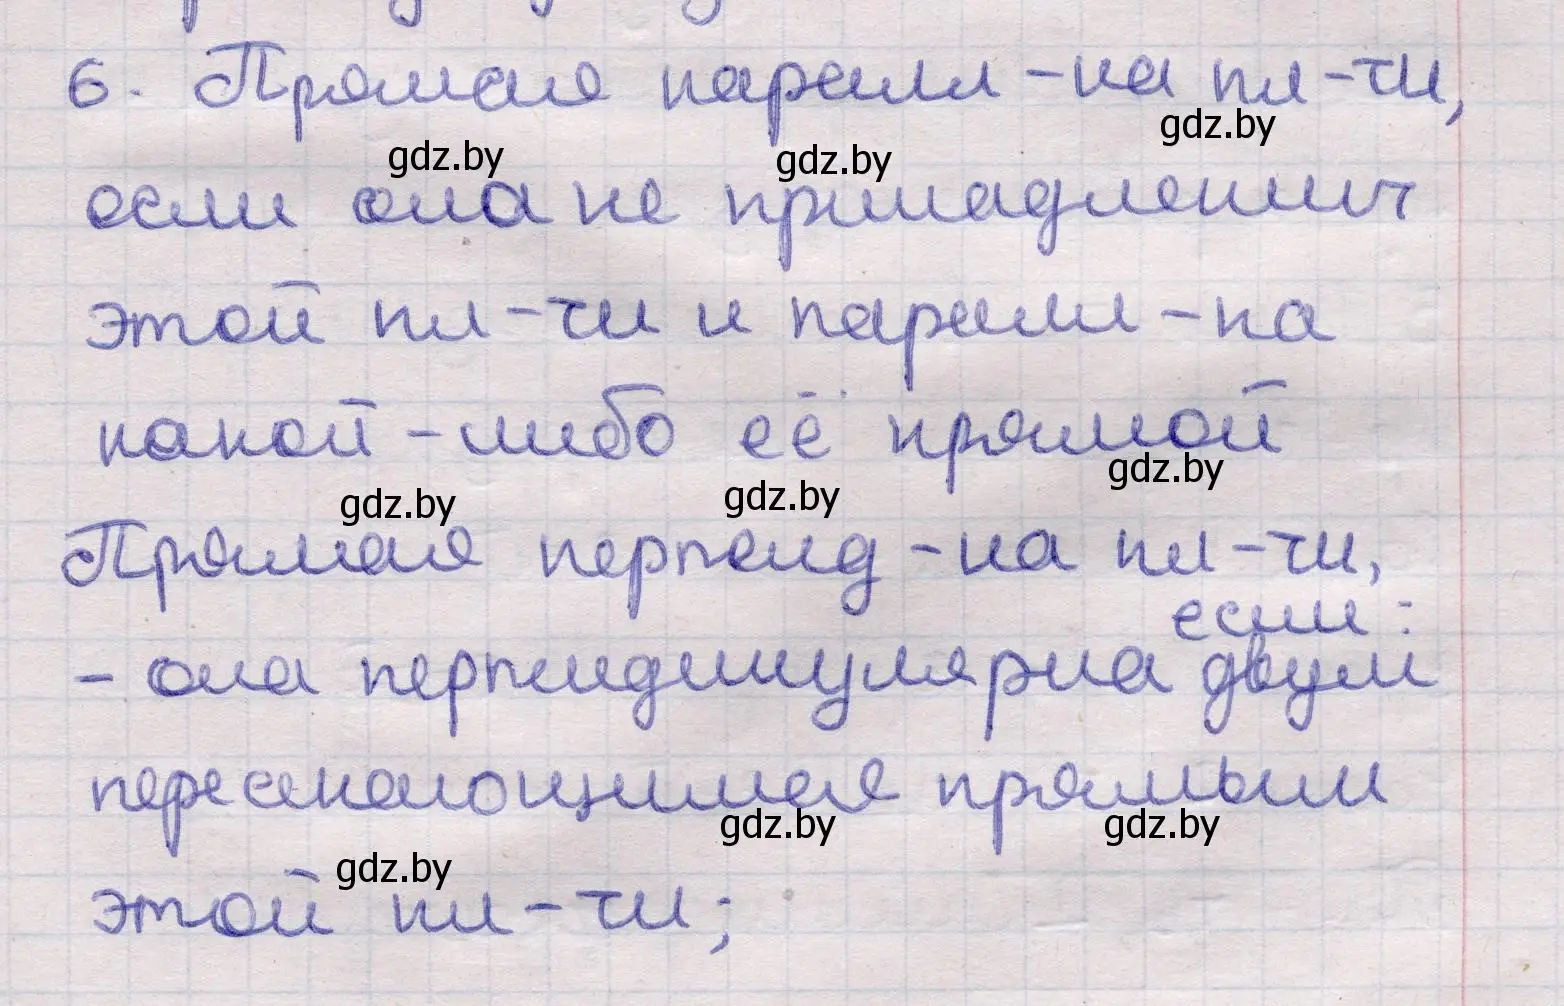 6. Прямая паралл-на пл-ти,
gdz.by gdz.by gdz.by
если она не принадлежит
этой пл-ти и паралл-на
какой-либо её прямой
gdz.by gdz.by gdz.by
Прямая перпенд-на пл-ти,
если:
- она перпендикулярна двум
пересекающимся прямым
gdz.by gdz.by gdz.by
этой пл-ти;